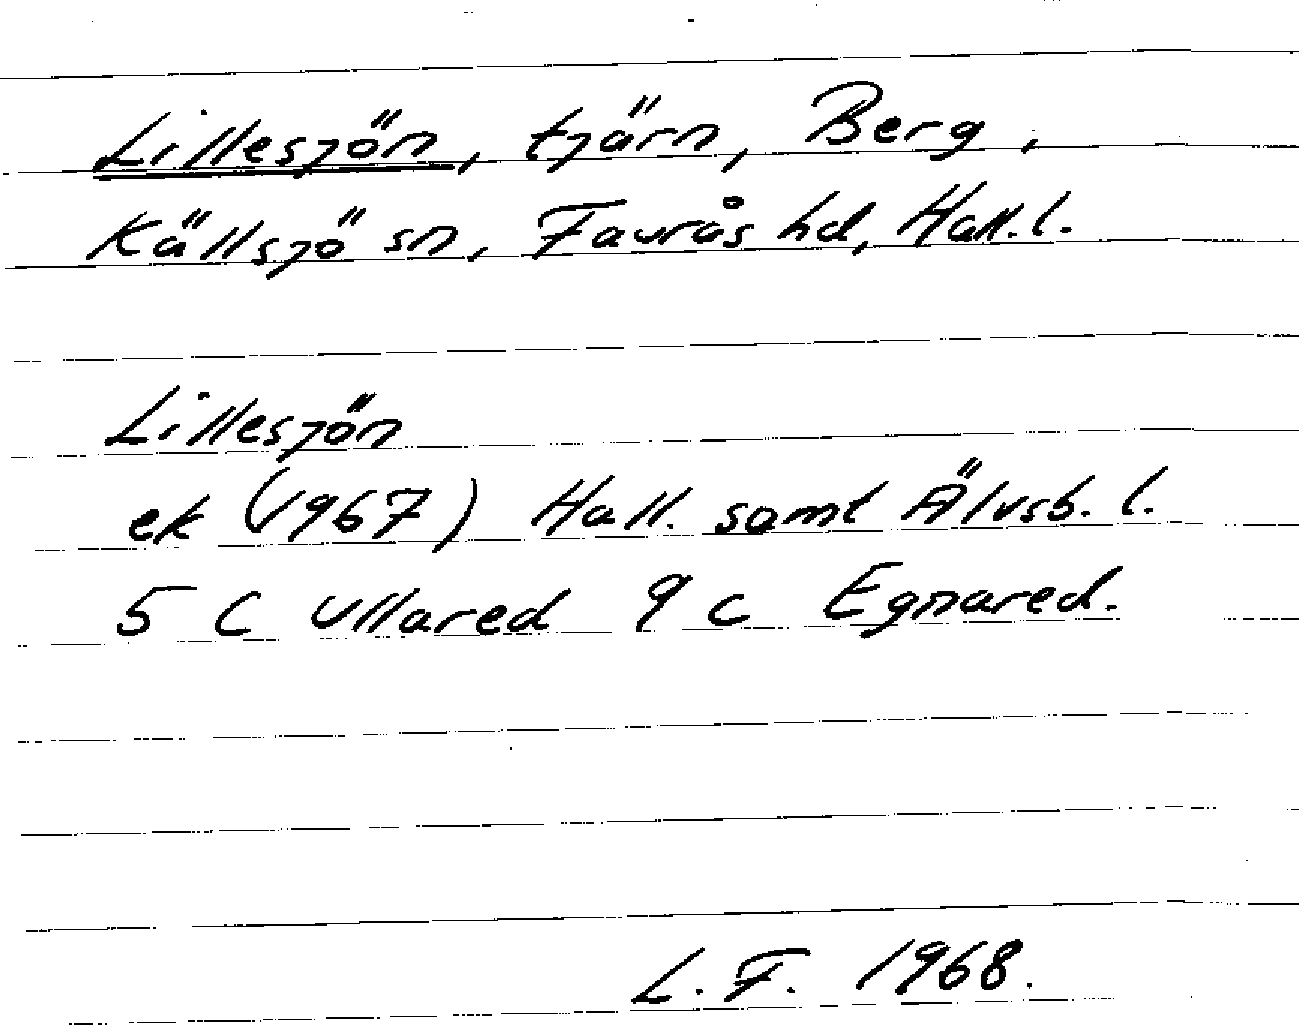 Lillesjön, tjärn, Berg,
Källsjö sn, Faurås hd, Hall.l.
Lillesjön
ek (1967) Hall. samt Älvsb. l.
5 C Ullared 9 c Egnared.
L. F. 1968.